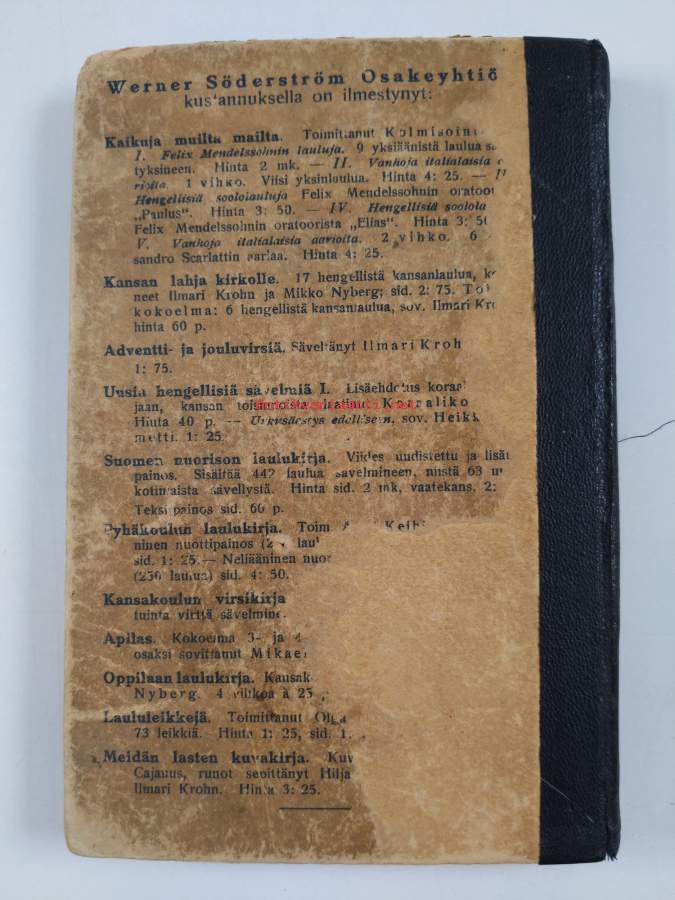 Werner Söderström Osakeyhtiö
kustannuksella on ilmestynyt:
Kaikuja muilta mailta. Toimittanut Kolmisoin
I. Felix Mendelssohnin lauluja. 9 yksiäänistä laulua sä
tyksineen. Hinta 2 mk. — II. Vanhoja italialaisia
rioita. 1 vihko. Viisi yksinlaulua. Hinta 4: 25. —
Hengellisiä soololauluja Felix Mendelssohnin oratoo
„Paulus“. Hinta 3: 50. — IV. Hengellisiä soolola
Felix Mendelssohnin oratoorista „Elias“. Hinta 3: 50
V. Vanhoja italialaisia aarioita. 2 vihko. 6
sandro Scarlattin aariaa. Hinta 4: 25.
Kansan lahja kirkolle. 17 hengellistä kansanlaulua,
neet Ilmari Krohn ja Mikko Nyberg; sid. 2: 75.
kokoelma: 6 hengellistä kansanlaulua, sov. Ilmari Kro
hinta 60 p.
Adventti- ja jouluvirsiä. Säveltänyt Ilmari Kroh
1: 75.
Uusia hengellisiä sävelmiä I. Lisäehdotus koraa
jaan, kansan toisinnoista Koraaliko
Hinta 40 p. — Urkusäestys edelliseen, sov. Heikk
metti. 1: 25.
Suomen nuorison laulukirja. Viides uudistettu ja lisät
painos. Sisältää 442 laulua sävelmineen, niistä 63 u
kotimaista sävellystä. Hinta sid. 2 mk, vaatekans. 2:
Tekstipainos sid. 60 p.
Pyhäkoulun laulukirja. Toim Keih
ninen nuottipainos lau
sid. 1: 25. — Neliääninen nuo
(250 laulua) sid. 4: 50.
Kansakoulun virsikirja
tuinta virttä sävelmine
Apilas. Kokoelma 3- ja 4
osaksi sovittanut Mikae
Oppilaan laulukirja. Kansak
Nyberg. 4 vihkoa à 25
Laululeikkejä. Toimittanut Olga
73 leikkiä. Hinta 1: 25, sid. 1.
Meidän lasten kuvakirja. Kuv
Cajanus, runot sepittänyt Hilja
Ilmari Krohn. Hinta 3: 25.